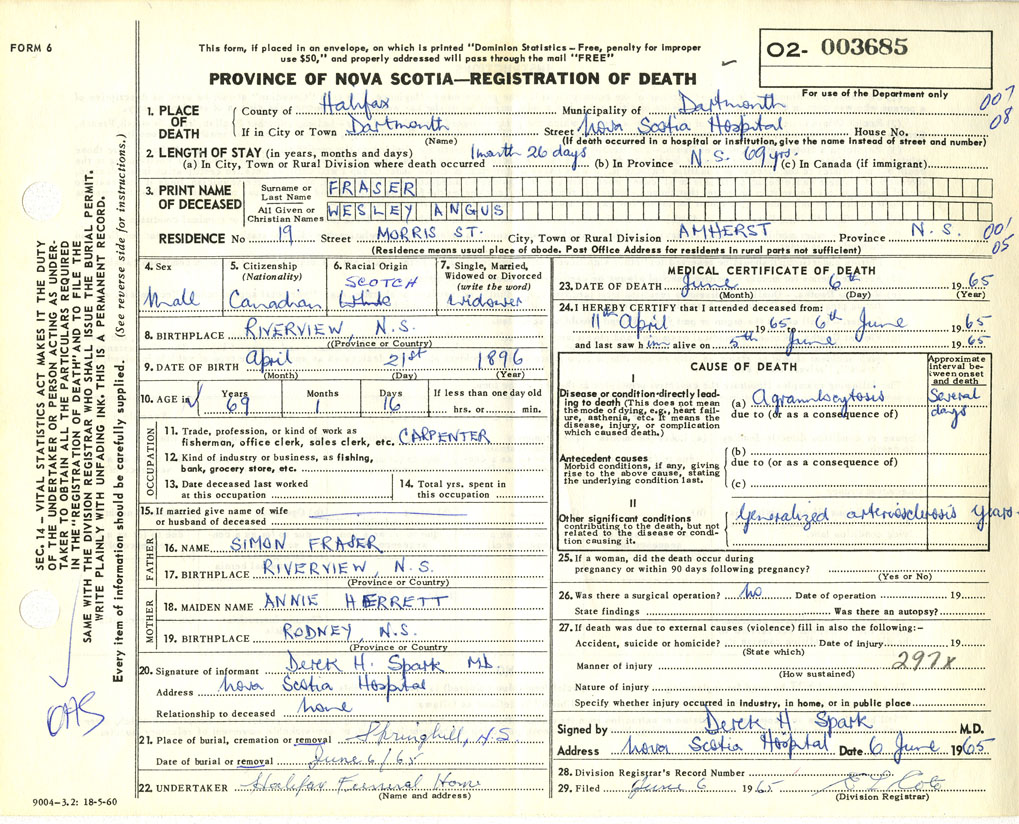 FORM 6
This form, if placed in an envelope, on which is printed "Dominion Statistics – Free, penalty for improper
use $50," and properly addressed will pass through the mail "FREE"
PROVINCE OF NOVA SCOTIA—REGISTRATION OF DEATH
O2- 003685
For use of the Department only
007
08
1. PLACE OF DEATH
County of Halifax Municipality of Dartmouth
If in City or Town Dartmouth Street Nova Scotia Hospital House No.
(Name) (If death occurred in a hospital or institution, give the name instead of street and number)
2. LENGTH OF STAY (in years, months and days)
(a) In City, Town or Rural Division where death occurred 1 month 26 days (b) In Province N.S. 69 yrs. (c) In Canada (if immigrant)
3. PRINT NAME OF DECEASED
Surname or Last Name FRASER
All Given or Christian Names WESLEY ANGUS
RESIDENCE No 19 Street MORRIS ST. City, Town or Rural Division AMHERST Province N.S. 001
05
(Residence means usual place of abode. Post Office Address for residents in rural parts not sufficient)
4. Sex
Male
5. Citizenship (Nationality)
Canadian
6. Racial Origin
SCOTCH
White
7. Single, Married, Widowed or Divorced (write the word)
Widower
8. BIRTHPLACE RIVERVIEW, N.S.
(Province or Country)
9. DATE OF BIRTH April 21st 1896
(Month) (Day) (Year)
10. AGE in Years Months Days If less than one day old
69 1 16 hrs. or min.
OCCUPATION
11. Trade, profession, or kind of work as
fisherman, office clerk, sales clerk, etc. CARPENTER
12. Kind of industry or business, as fishing,
bank, grocery store, etc.
13. Date deceased last worked
at this occupation
14. Total yrs. spent in
this occupation
15. If married give name of wife
or husband of deceased
FATHER
16. NAME SIMON FRASER
17. BIRTHPLACE RIVERVIEW, N.S.
(Province or Country)
MOTHER
18. MAIDEN NAME ANNIE HERRETT
19. BIRTHPLACE RODNEY, N.S.
(Province or Country)
20. Signature of informant Derek H. Spark M.D.
Address Nova Scotia Hospital
Relationship to deceased none
21. Place of burial, cremation or removal Springhill, N.S
Date of burial or removal June 6/65
22. UNDERTAKER Halifax Funeral Home
(Name and address)
9004-3.2: 18-5-60
MEDICAL CERTIFICATE OF DEATH
23. DATE OF DEATH June 6th 1965
(Month) (Day) (Year)
24. I HEREBY CERTIFY that I attended deceased from:
11th April 1965, 6th June 1965
and last saw him alive on 5th June 1965
CAUSE OF DEATH
Approximate interval between onset and death
I
Disease or condition directly leading to death (This does not mean the mode of dying, e.g., heart failure, asthenia, etc. It means the disease, injury, or complication which caused death.)
(a) Agranulocytosis Several days
due to (or as a consequence of)
Antecedent causes
Morbid conditions, if any, giving rise to the above cause, stating the underlying condition last.
(b)
due to (or as a consequence of)
(c)
II
Other significant conditions
contributing to the death, but not related to the disease or condition causing it.
Generalized arteriosclerosis Years.
25. If a woman, did the death occur during
pregnancy or within 90 days following pregnancy?
(Yes or No)
26. Was there a surgical operation? no Date of operation 19
State findings Was there an autopsy?
27. If death was due to external causes (violence) fill in also the following:–
Accident, suicide or homicide? Date of injury 19
(State which)
Manner of injury 297x
(How sustained)
Nature of injury
Specify whether injury occurred in industry, in home, or in public place
Signed by Derek H. Spark M.D.
Address Nova Scotia Hospital Date 6 June 1965
28. Division Registrar's Record Number
29. Filed June 6 1965
(Division Registrar)
SEC. 14 – VITAL STATISTICS ACT MAKES IT THE DUTY
OF THE UNDERTAKER OR PERSON ACTING AS UNDER-
TAKER TO OBTAIN ALL THE PARTICULARS REQUIRED
IN THE "REGISTRATION OF DEATH" AND TO FILE THE
SAME WITH THE DIVISION REGISTRAR WHO SHALL ISSUE THE BURIAL PERMIT.
WRITE PLAINLY WITH UNFADING INK. THIS IS A PERMANENT RECORD.
Every item of information should be carefully supplied. (See reverse side for instructions.)